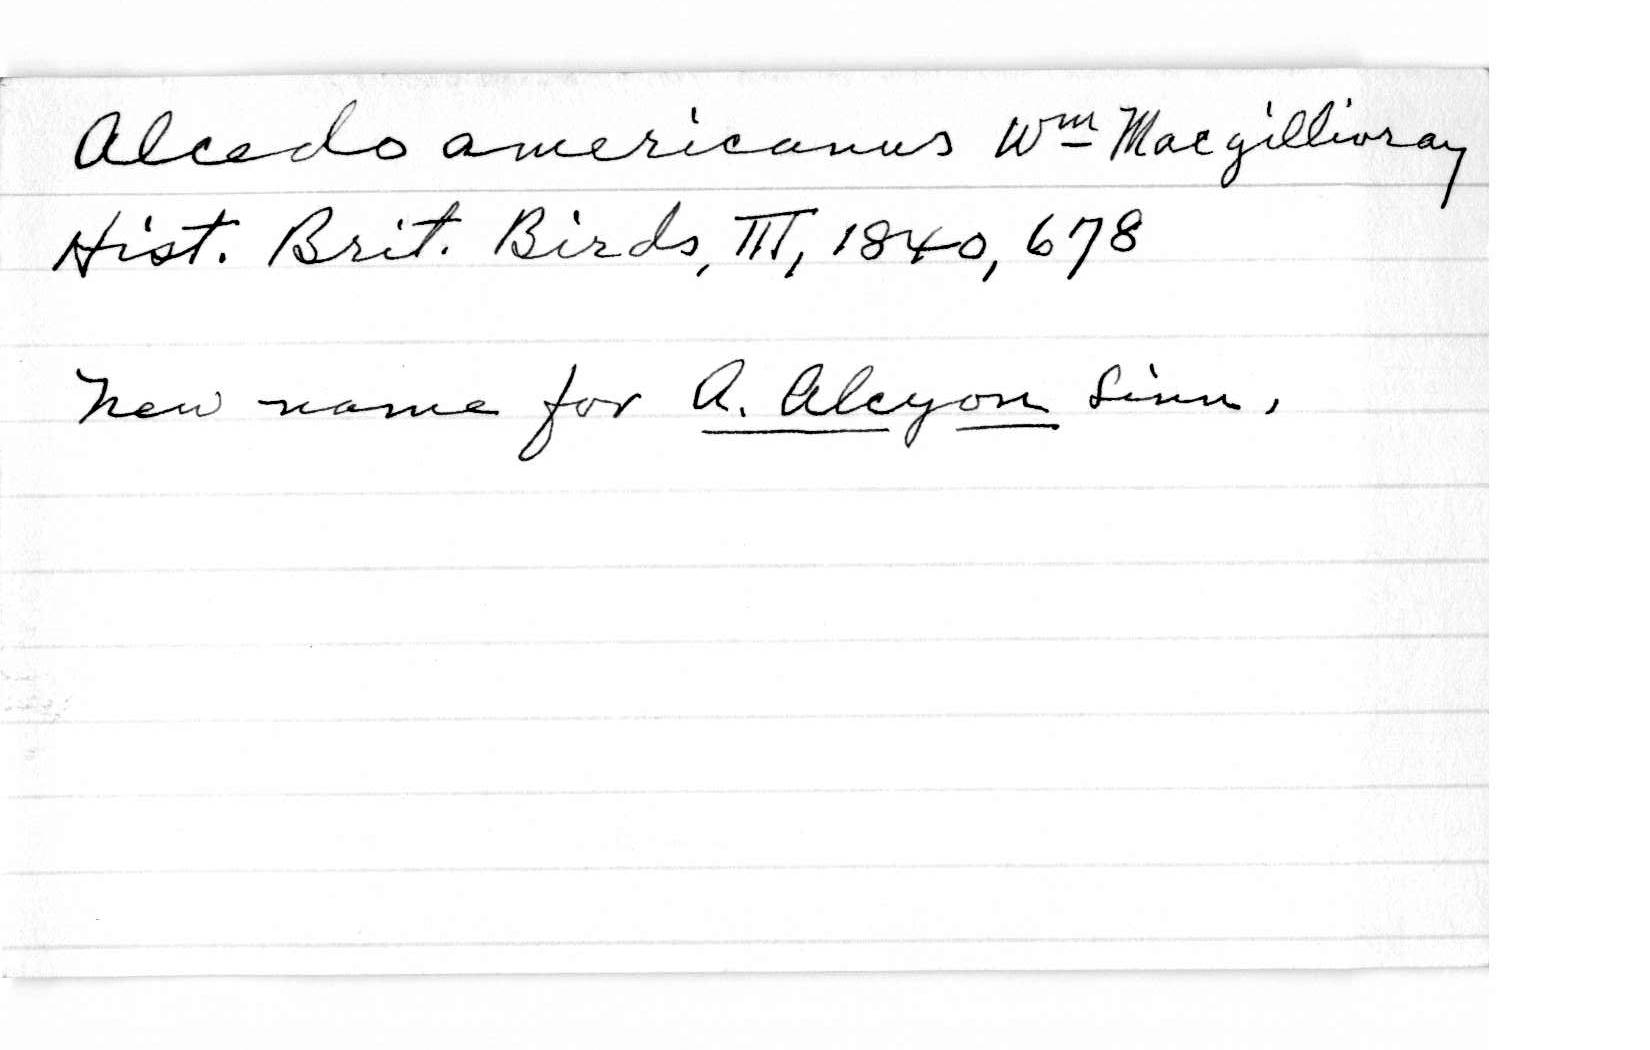 Alcedo americanus Wm Macgillivray
Hist. Brit. Birds, III, 1840, 678
New name for A. Alcyon Linn.